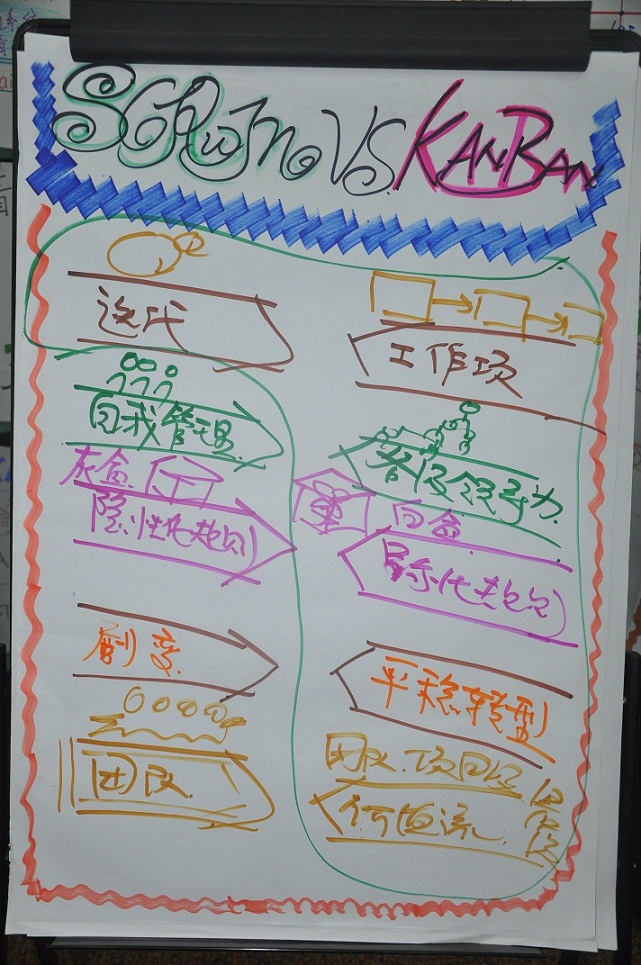 SCRUM VS. KANBAN
迭代
工作项
自我管理
各层领导力
灰盒
隐性化规则
白盒
显示化规则
剧变
平稳转型
团队
团队、项目级
价值流